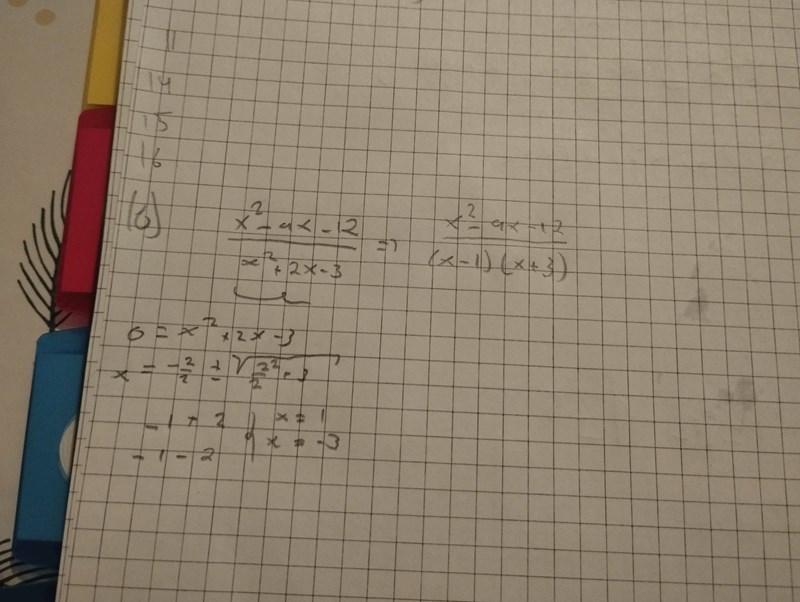 11
14
15
16
(6)
x² - ax - 12 / x² + 2x - 3 => x² - ax - 12 / (x - 1)(x + 3)
0 = x² + 2x - 3
x = -2/2 ± √
-1 + 2 | x = 1
-1 - 2 | x = -3